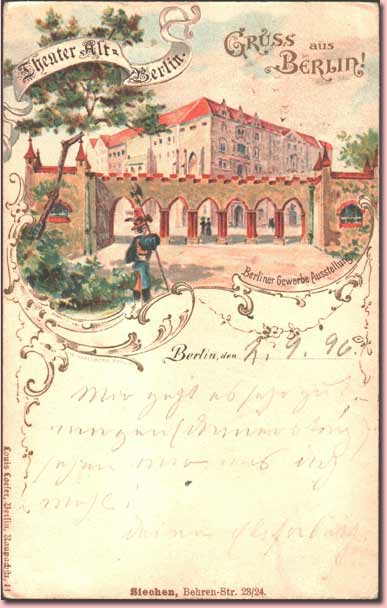 Theater Alt-Berlin.
Gruss aus Berlin!
Berliner Gewerbe Ausstellung
Berlin, den 2. 9. 96.
Mir geht es sehr gut
morgen
sehen wir uns
Deine
Louis Loefer, Berlin, Raupachstr. 11
Siechen, Behren-Str. 23/24.